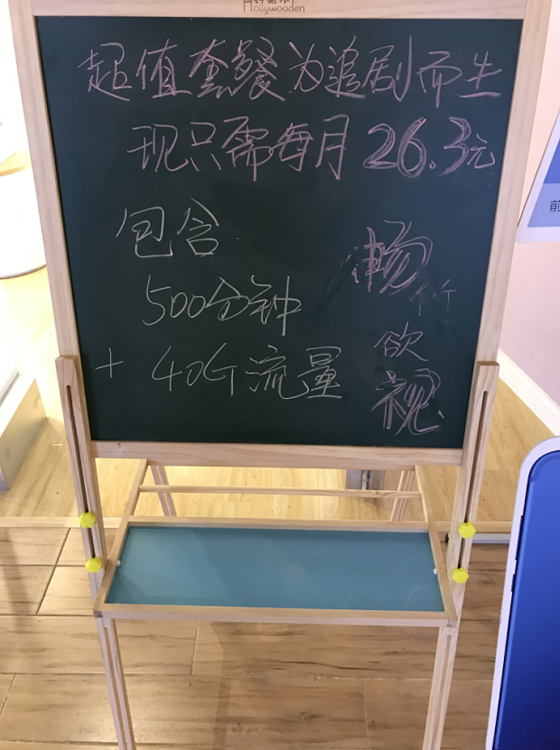 Hollywooden
超值套餐为追剧而生
现只需每月26.3元
包含
500分钟
+ 40G流量
畅
行
欲
视
前